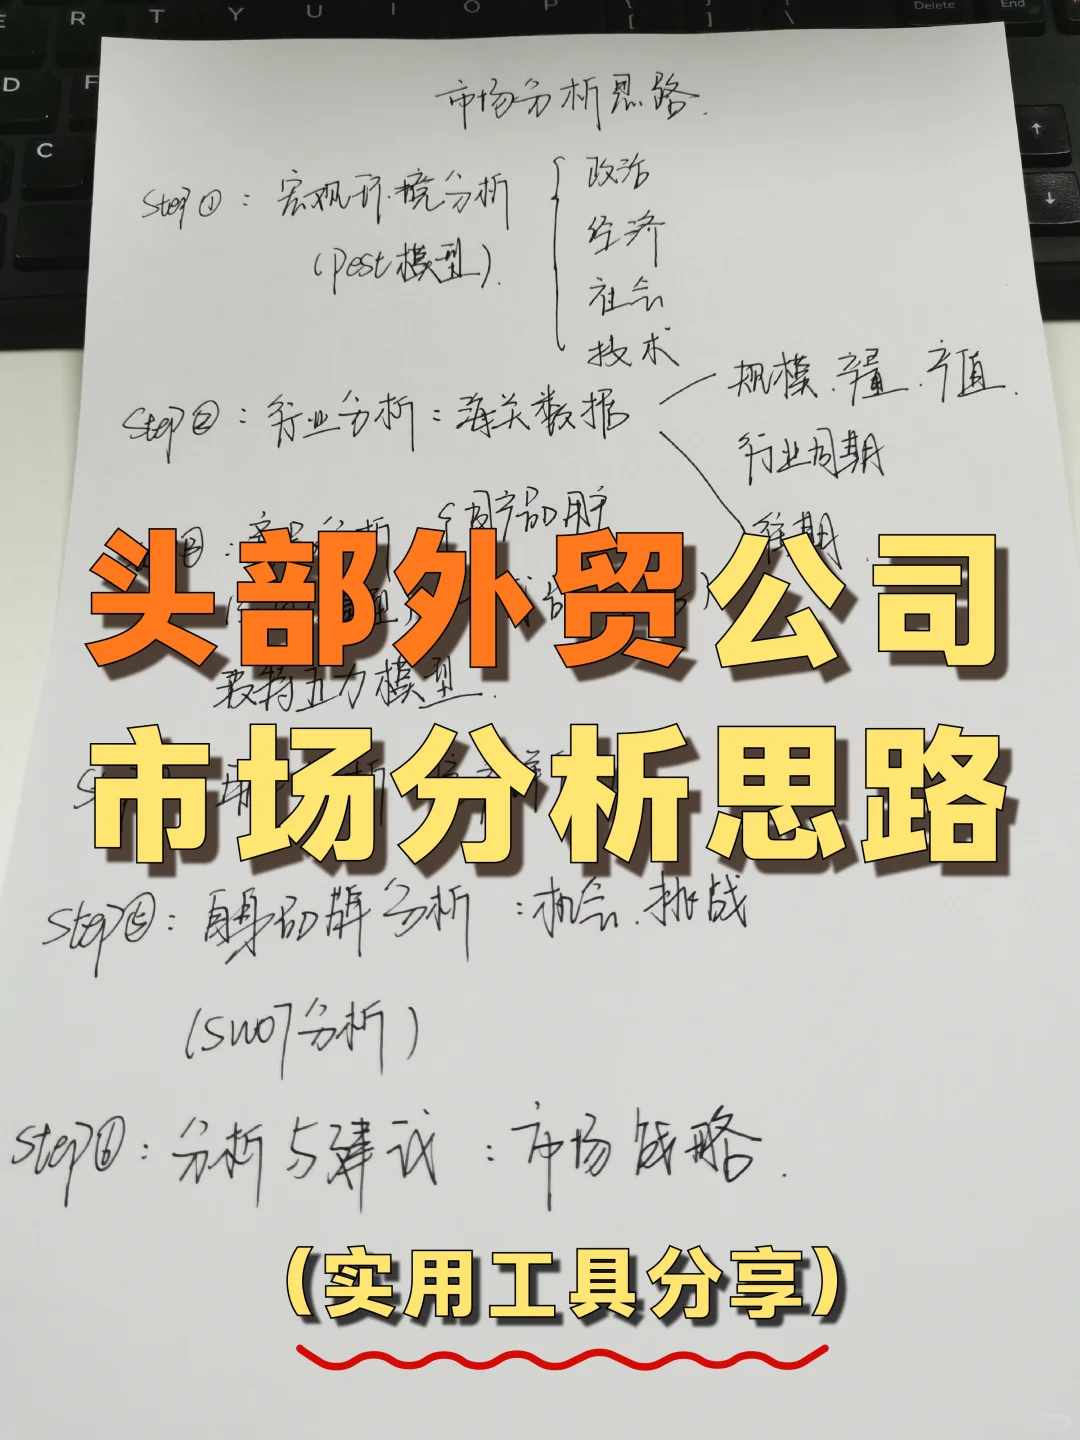 E R T Y U I O P { [ } ] | \ Delete End
D F
C
↑
↓
市场分析思路.
Step①: 宏观环境分析
(Pest模型).
政治
经济
社会
技术
Step②: 行业分析: 海关数据
规模、产量、产值.
行业周期
淡旺期
分析
同产品用户
头部外贸公司
波特五力模型.
市场分析思路
Step⑤: 自身品牌分析: 机会、挑战
(SWOT分析)
Step⑥: 分析与建议: 市场战略.
(实用工具分享)